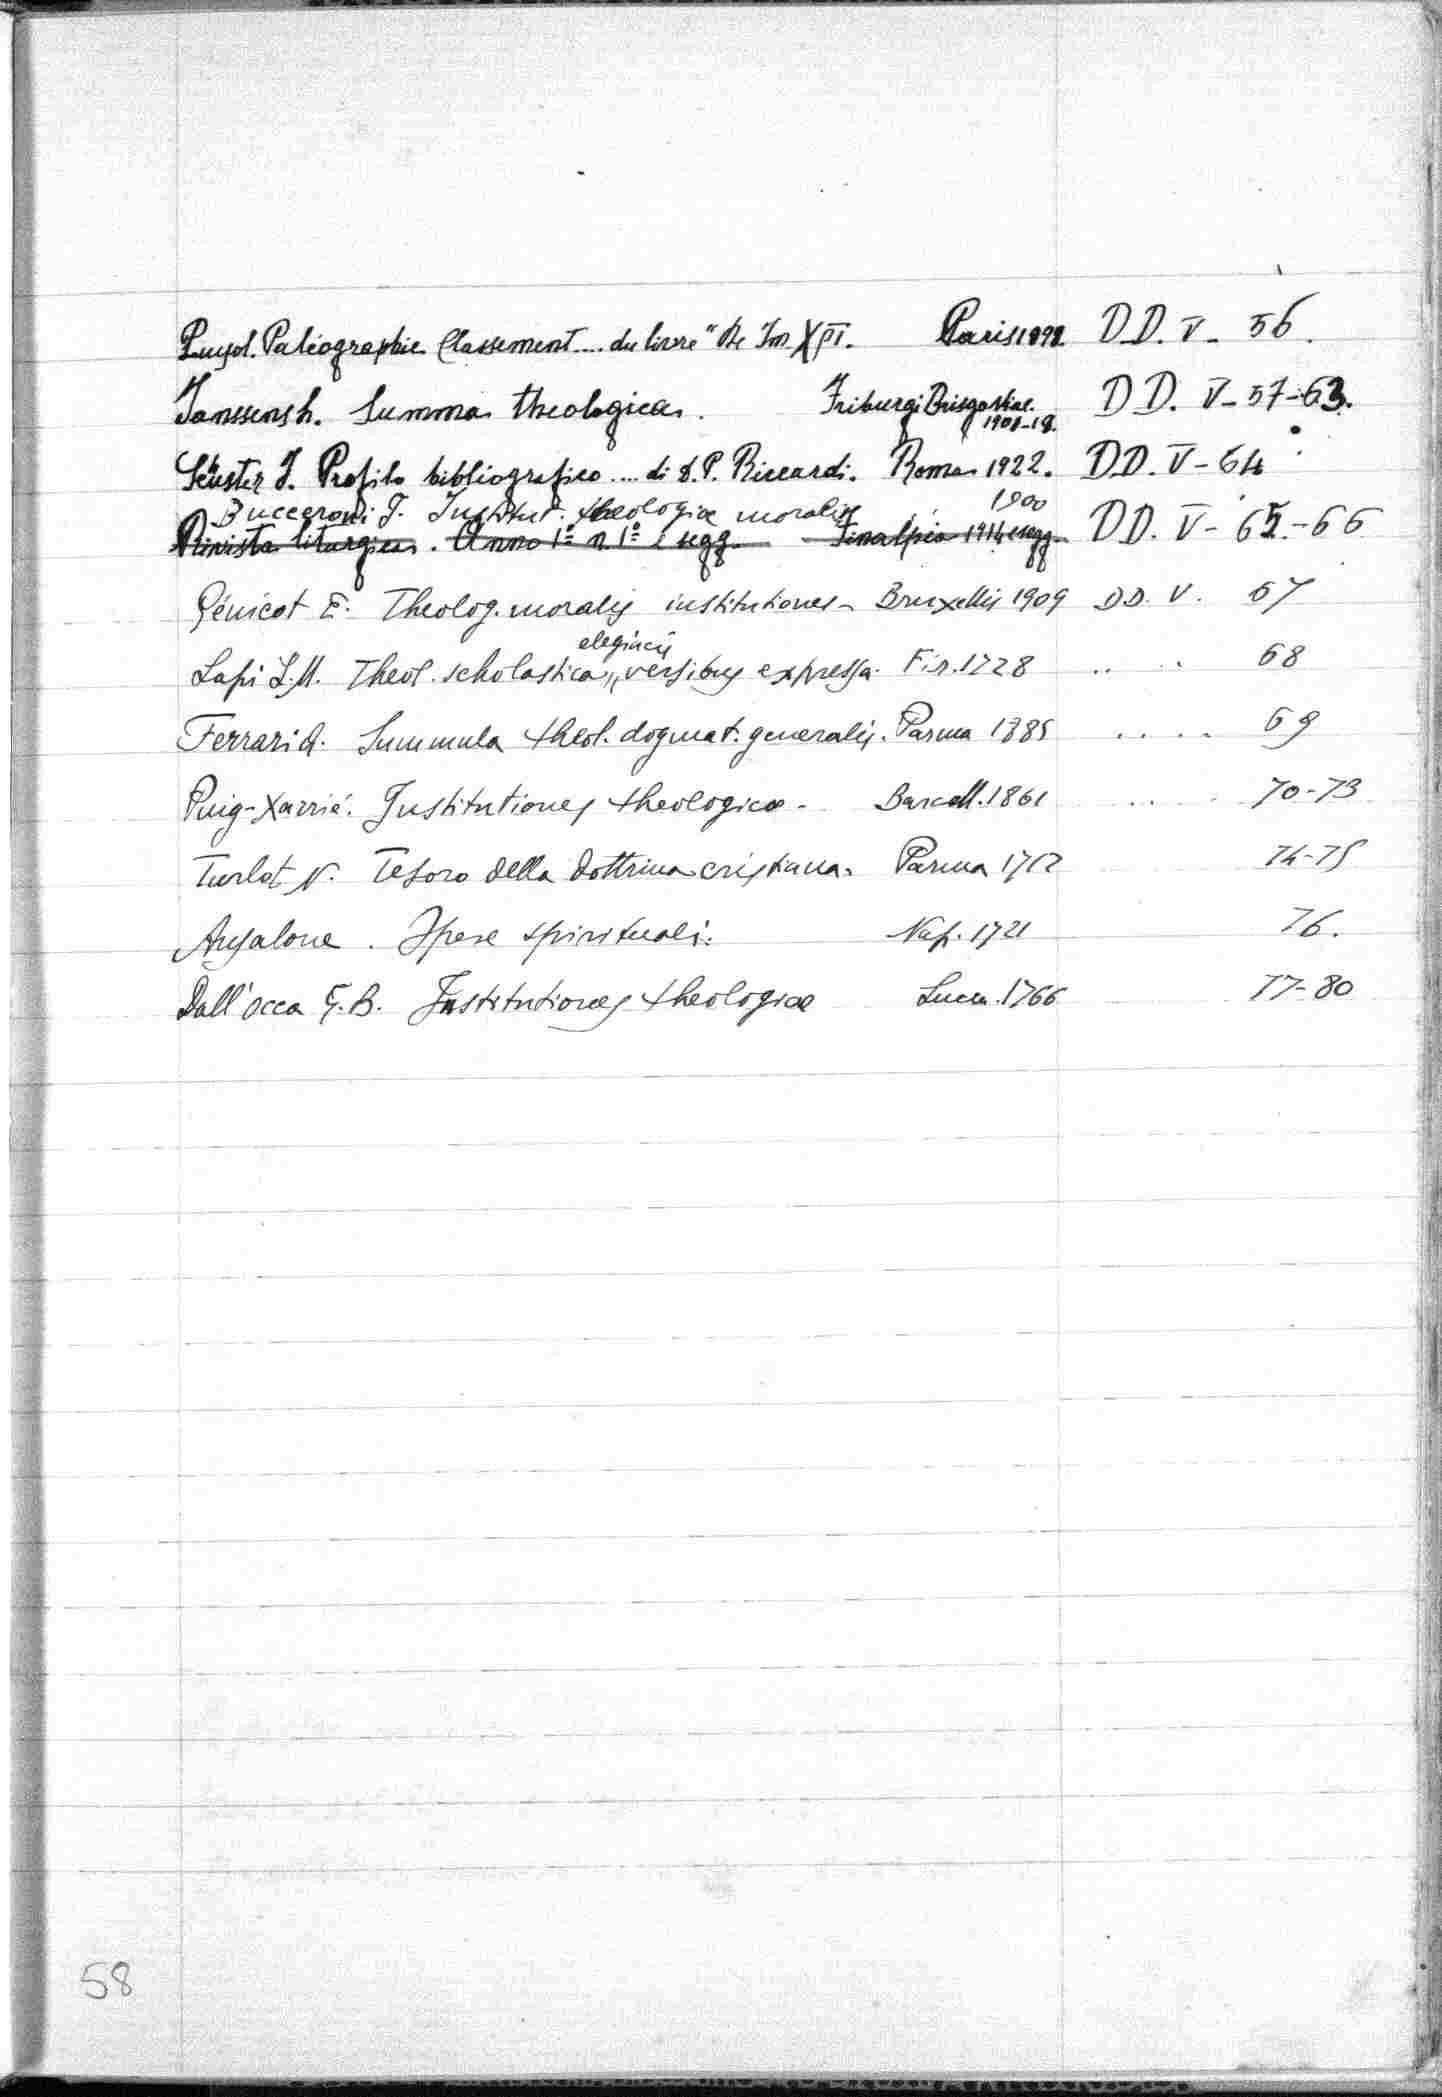 Puyol. Paléographie Classement .... du livre "De Im. XPI. Paris 1898 D.D. V - 56.
Janssens h. Summa theologica. Friburgi Brisgoviae. 1901-18. D D. V - 57-63.
Schuster I. Profilo bibliografico .... di D. P. Riccardi. Roma 1922. D.D. V - 64
Bucceroni J. Institut. theologiæ moralis 1900
Rivista liturgica. Anno 1º n. 1º e segg. Finalpia 1914 e segg. D D. V - 65-66
Génicot E. Theolog. moralis institutiones - Bruxellis 1909 D.D. V. 67
elegiacis
Lapi L.M. Theol. scholastica „ versibus expressa. Fir. 1728 .. . . 68
Ferrari A. Summula theol. dogmat. generalis. Parma 1885 . . . . 69
Puig-Xarrié. Institutiones theologicæ - Barcell. 1861 . . . 70-73
Turlot N. Tesoro della Dottrina cristiana. Parma 74-75
Opere spirituali. Nap. 1721 76.
Dall'Occa G.B. Institutiones theologicæ Lucca. 1766 77-80
58